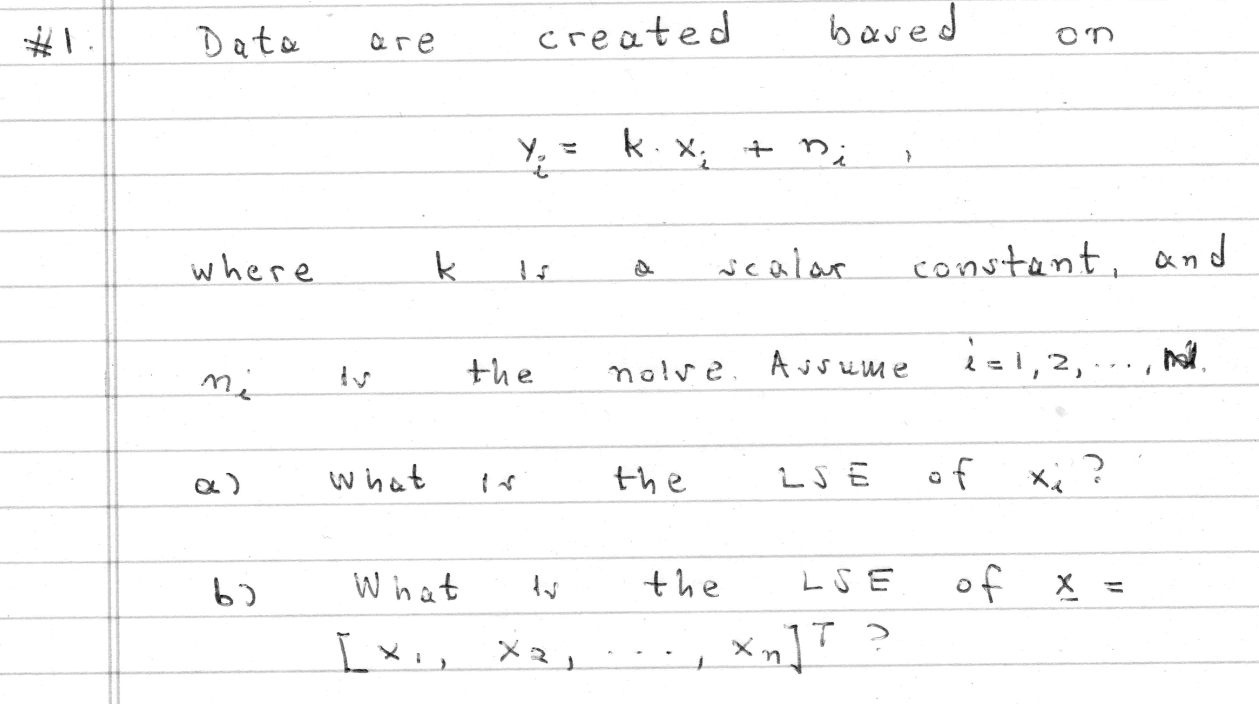 #1. Data are created based on
y_i = k · x_i + n_i ,
where k is a scalar constant, and
n_i is the noise. Assume i = 1, 2, ..., 
a) What is the LSE of x_i ?
b) What is the LSE of x =
[x_1, x_2, ..., x_n]^T ?